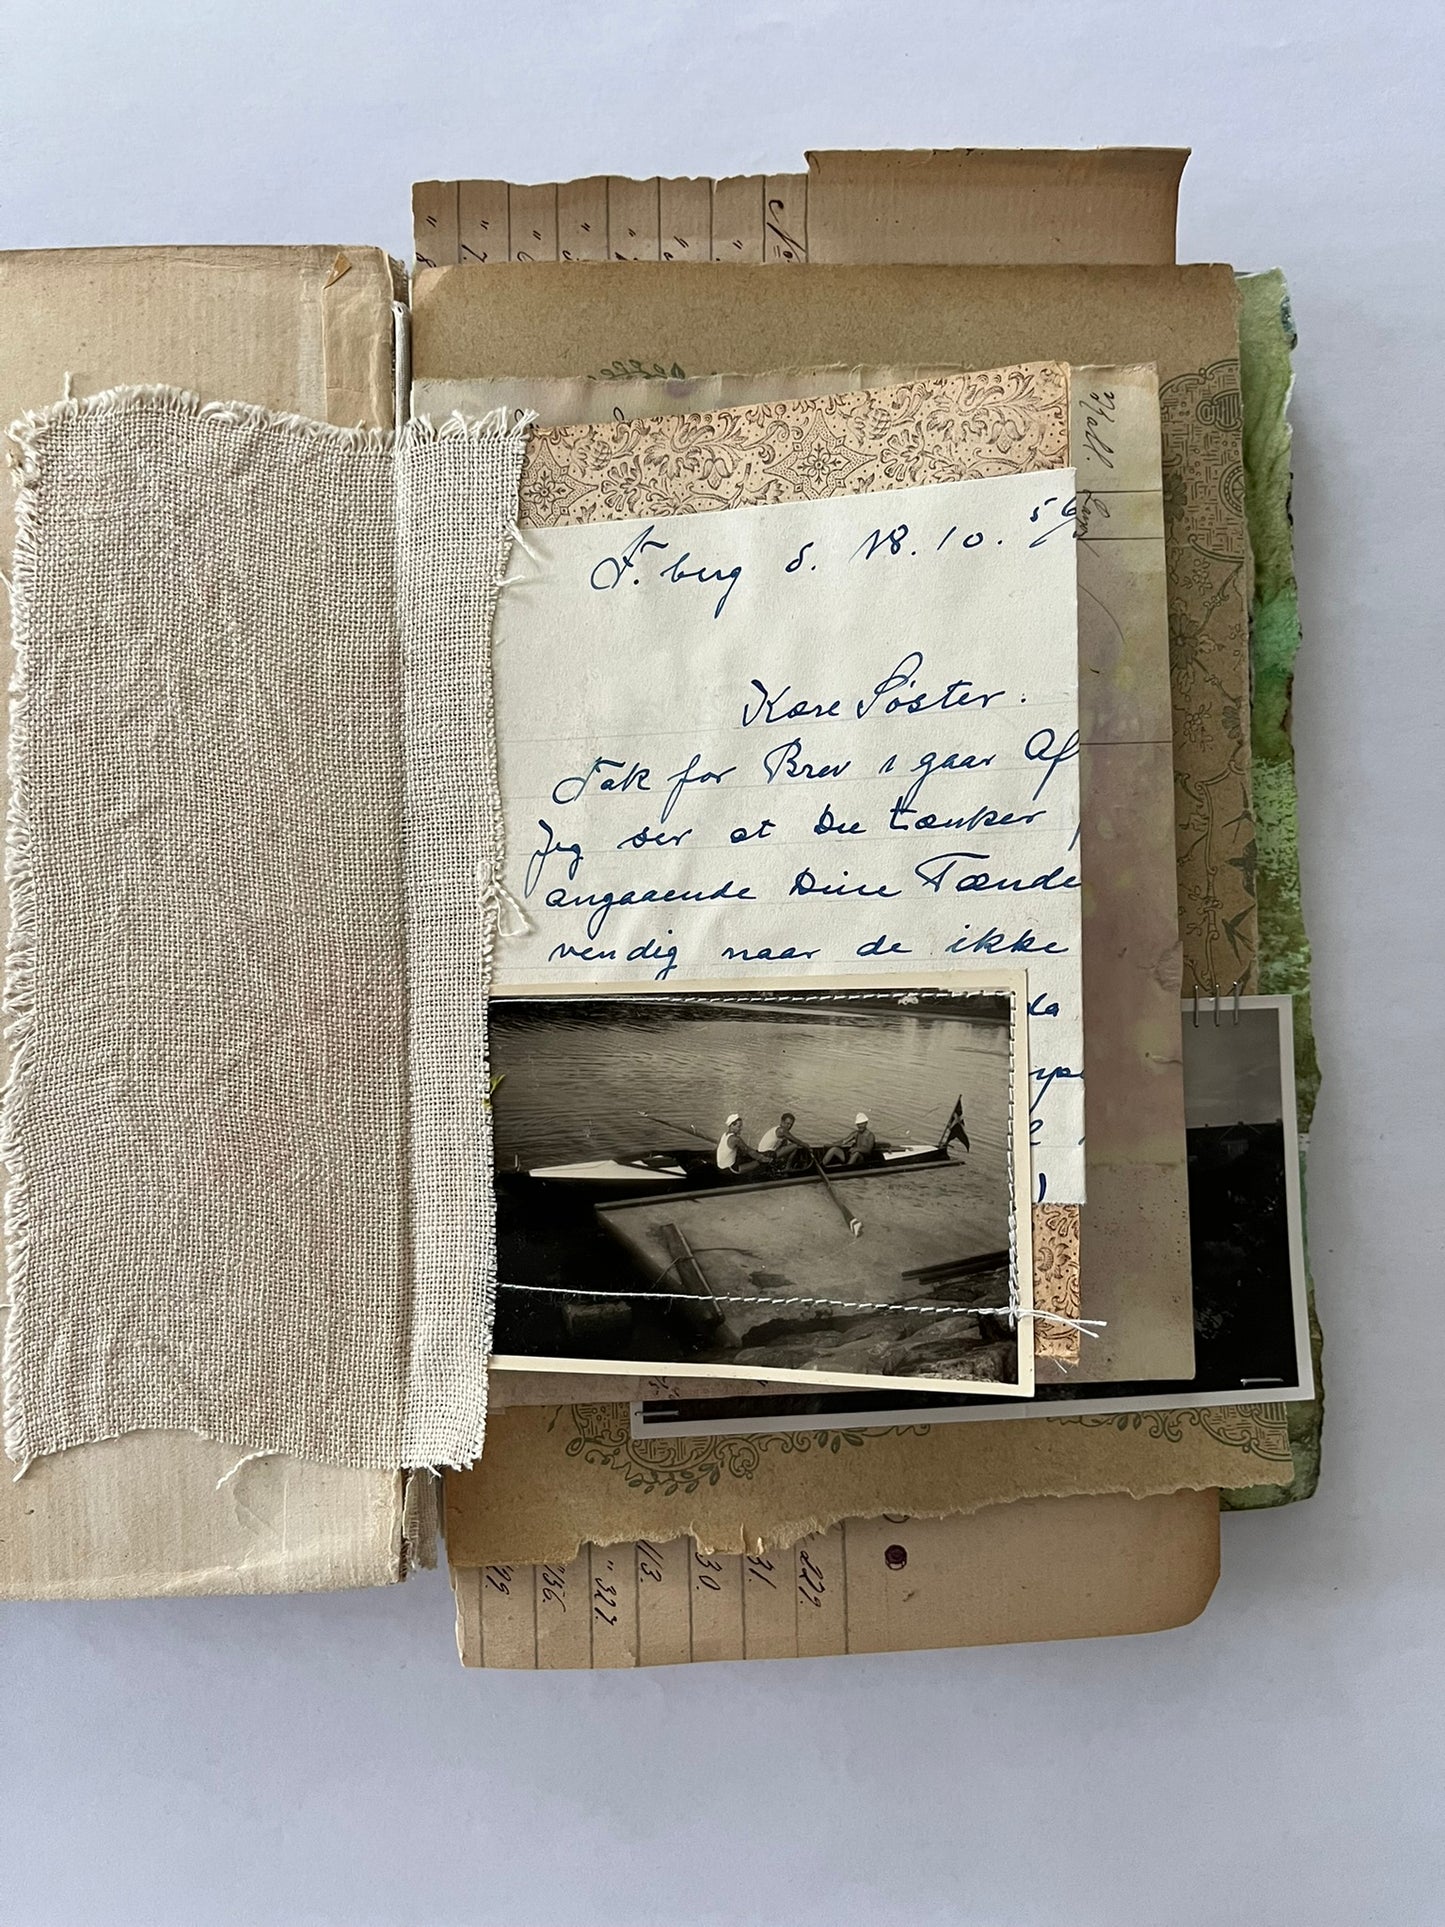 No
F. berg d. 18. 10. 56
Kære Søster.
Tak for Brev i gaar Af
Jeg ser at Du tænker
angaaende Dine Tænde
vendig naar de ikke
da
227.
31.
30.
113.
" 327.
136.